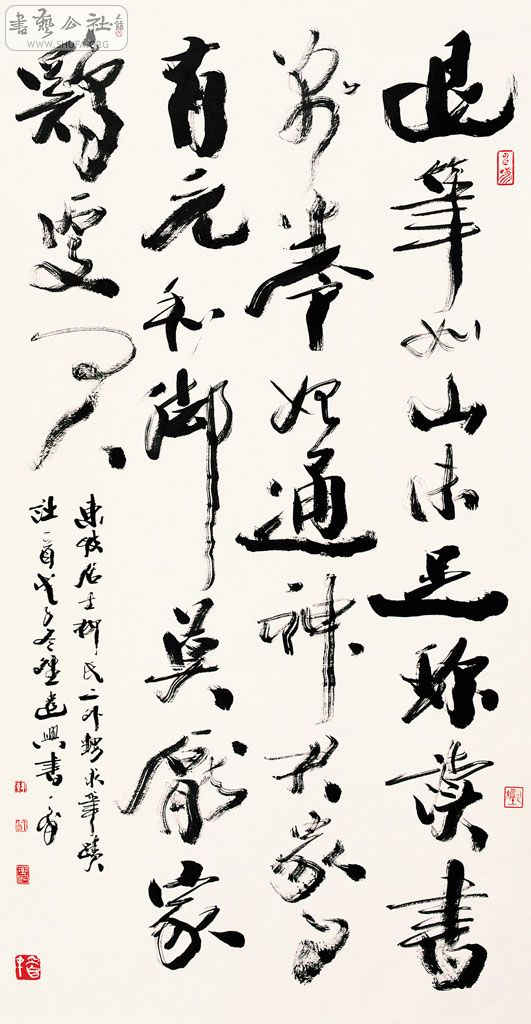 書藝公社
WWW.SHUFA.ORG
退筆如山未足珍讀書
萬卷始通神君家自
有元和脚莫厭家
鷄更問人
東坡居士柳氏二外甥求筆蹟
詩一首戊子冬遣興書